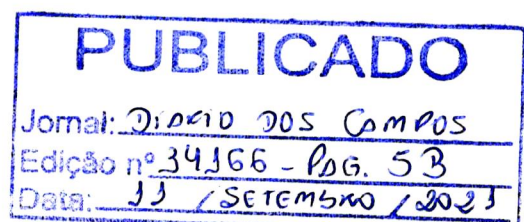 PUBLICADO
Jornal: DIARIO DOS CAMPOS
Edição nº 34166 - PAG. 5B
Data: 11 / SETEMBRO / 2021